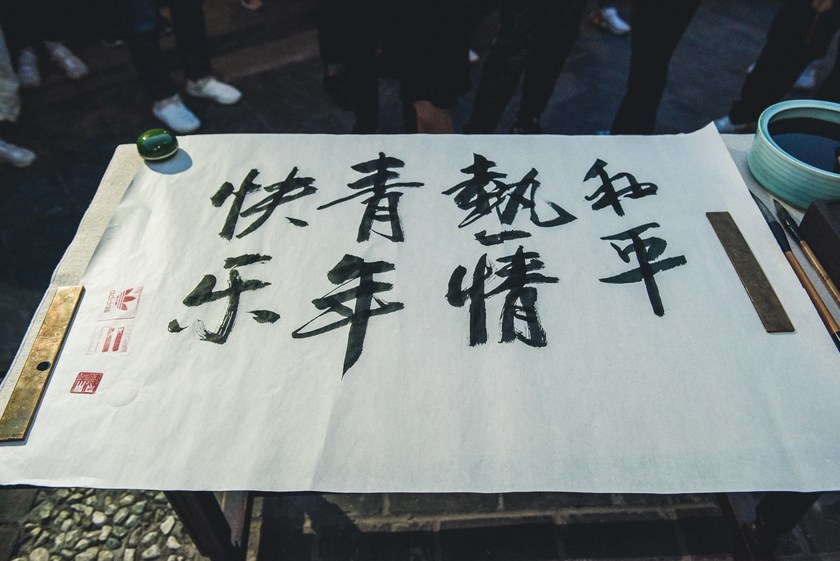 和平
熱情
青年
快乐